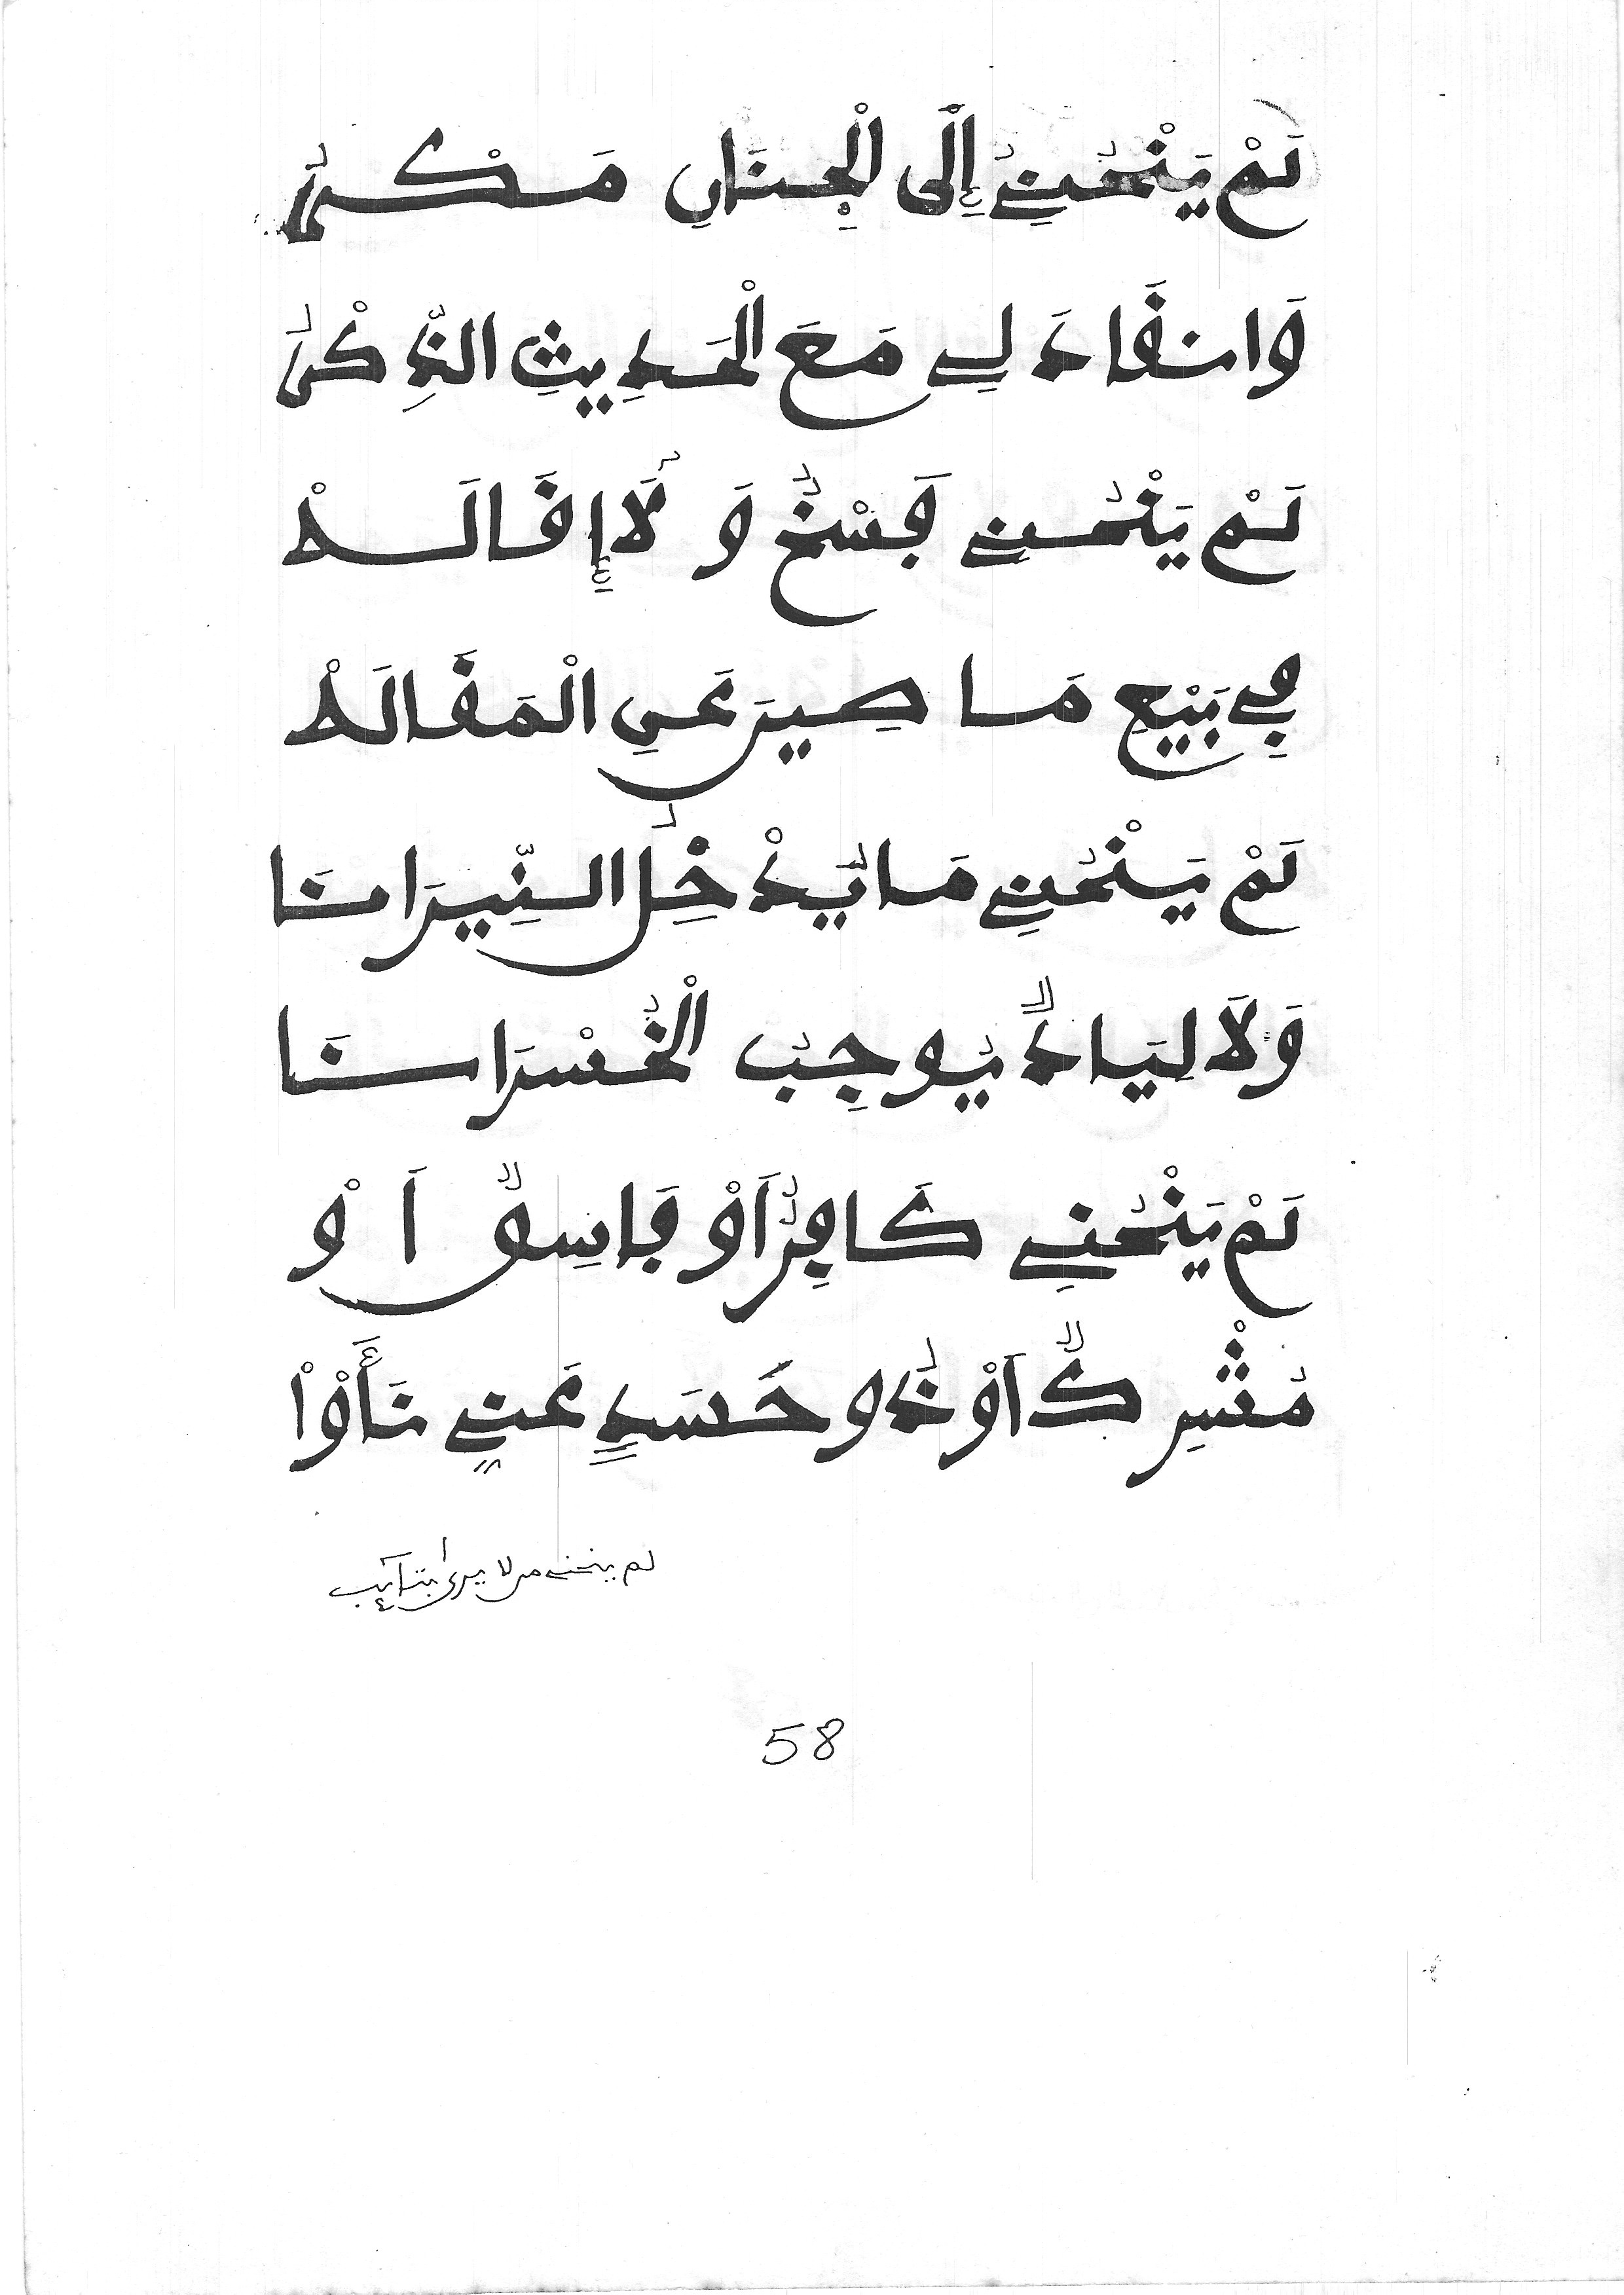 لَمْ يَنْحُنِي إِلَى الْجِنَانِ مَكْرُ
وَانقَادَ لِي مَعَ الْحَدِيثِ الذِّكْرُ
لَمْ يَنْحُنِي فَسْخٌ وَلَا إِقَالَهْ
فِي بَيْعِ مَا صِيرَ عَنِ الْمَقَالَهْ
لَمْ يَنْحُنِي مَا يُدْخِلُ النِّيرَانَا
وَلَا لِيَادٌ يُوجِبُ الْخُسْرَانَا
لَمْ يَنْحُنِي كَافِرٌ أَوْ فَاسِقٌ أَوْ
مُشْرِكٌ أَوْ ذُو حَسَدٍ عَنِّي نَأَوْاْ
لم ينحني من لا يرى بتآئب
58